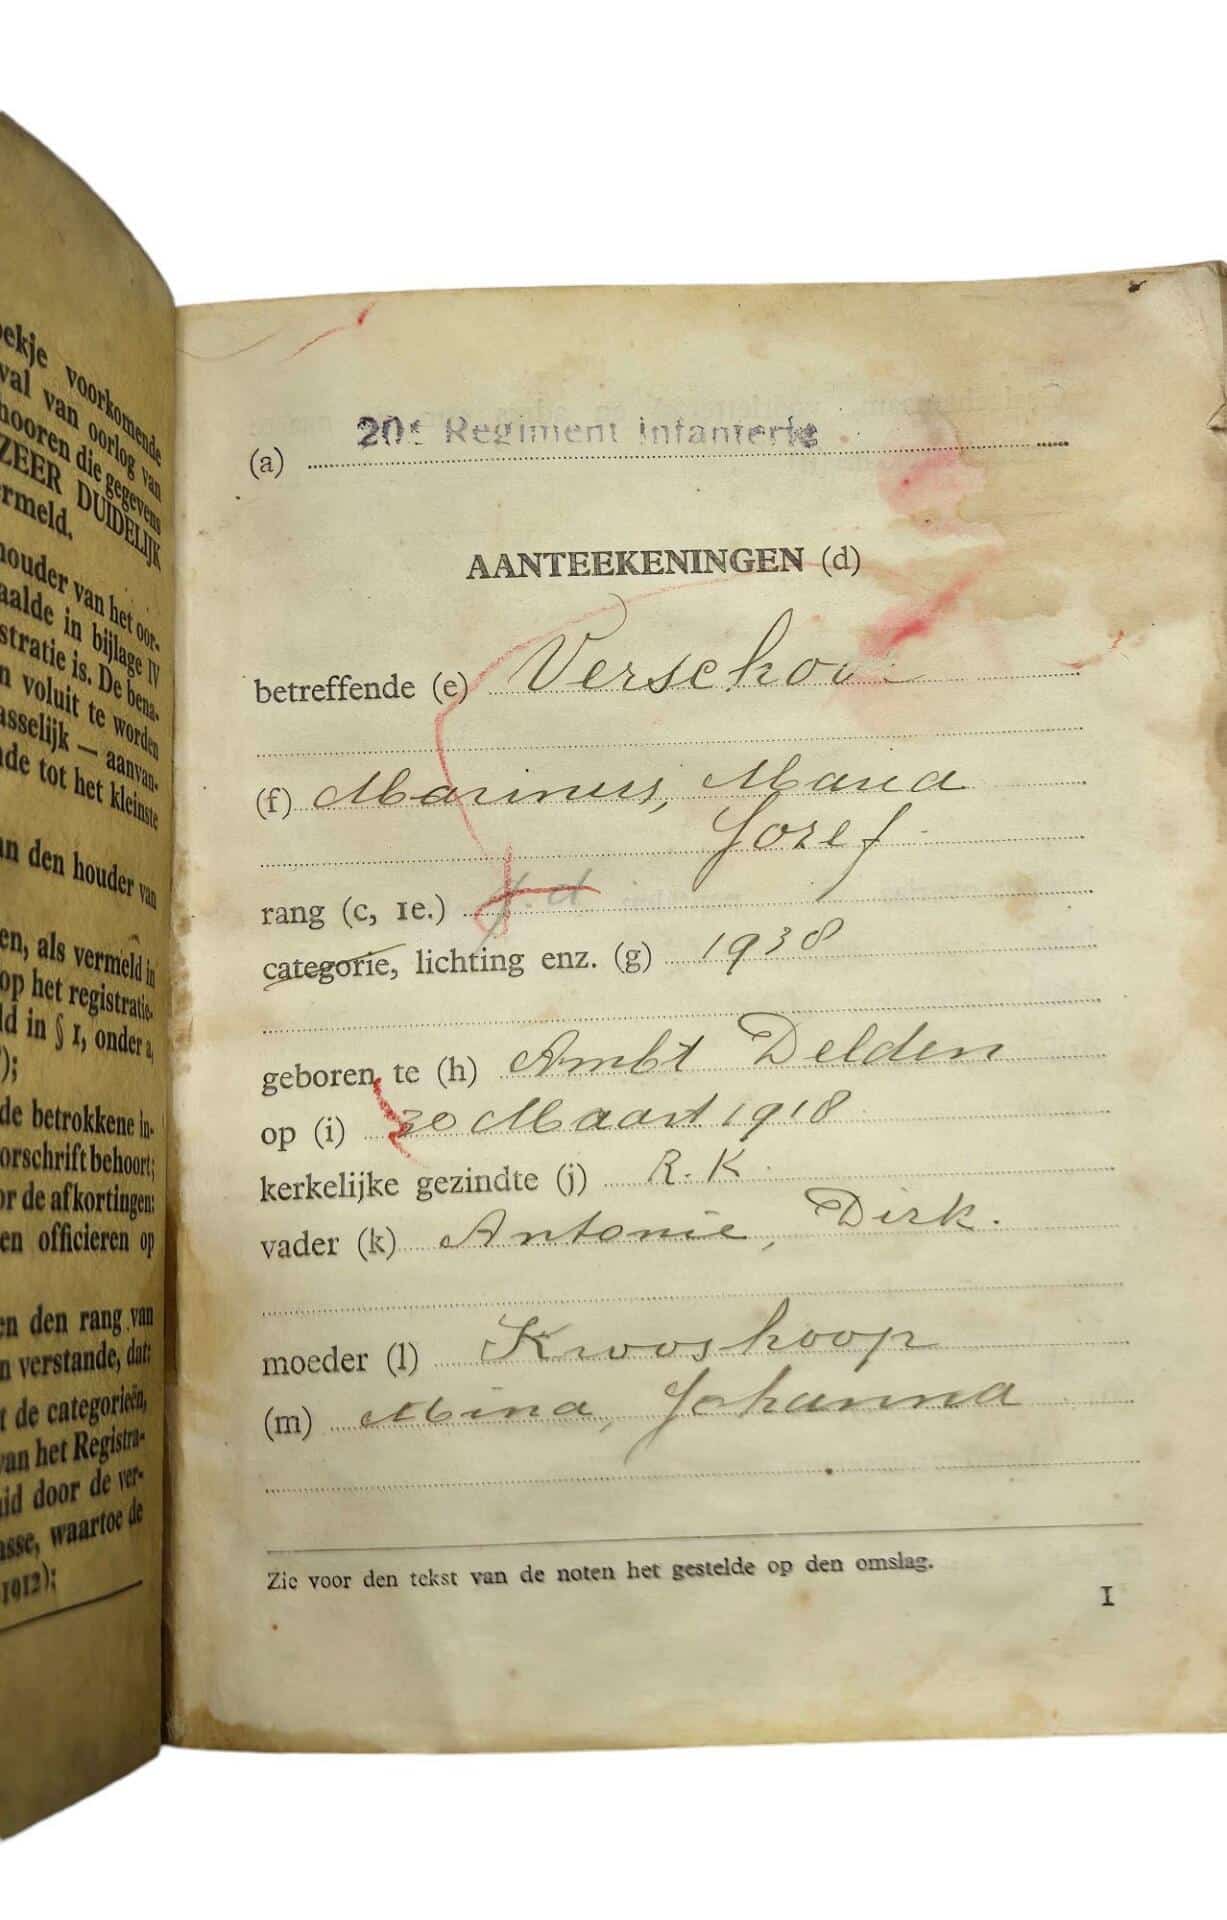 ekje voorkomende
val van oorlog van
hooren die gegevens
ZEER DUIDELIJK
ermeld.
houder van het oor-
aalde in bijlage IV
stratie is. De bena-
n voluit te worden
asselijk — aanvan-
nde tot het kleinste
an den houder van
en, als vermeld in
op het registratie-
ld in § 1, onder a,
);
de betrokkene in-
orschrift behoort;
or de afkortingen;
en officieren op
en den rang van
n verstande, dat:
t de categorieën,
van het Registra-
uid door de ver-
asse, waartoe de
1912);
(a) 20e Regiment Infanterie
AANTEEKENINGEN (d)
betreffende (e)
(f) Marinus, Maria
Jozef
rang (c, 1e.)
categorie, lichting enz. (g) 1938
geboren te (h) Ambt Delden
op (i) 30 Maart 1918
kerkelijke gezindte (j) R.K.
vader (k) Antonie, Dirk.
moeder (l) Krooshoop
(m) Mina, Johanna
Zie voor den tekst van de noten het gestelde op den omslag.
1